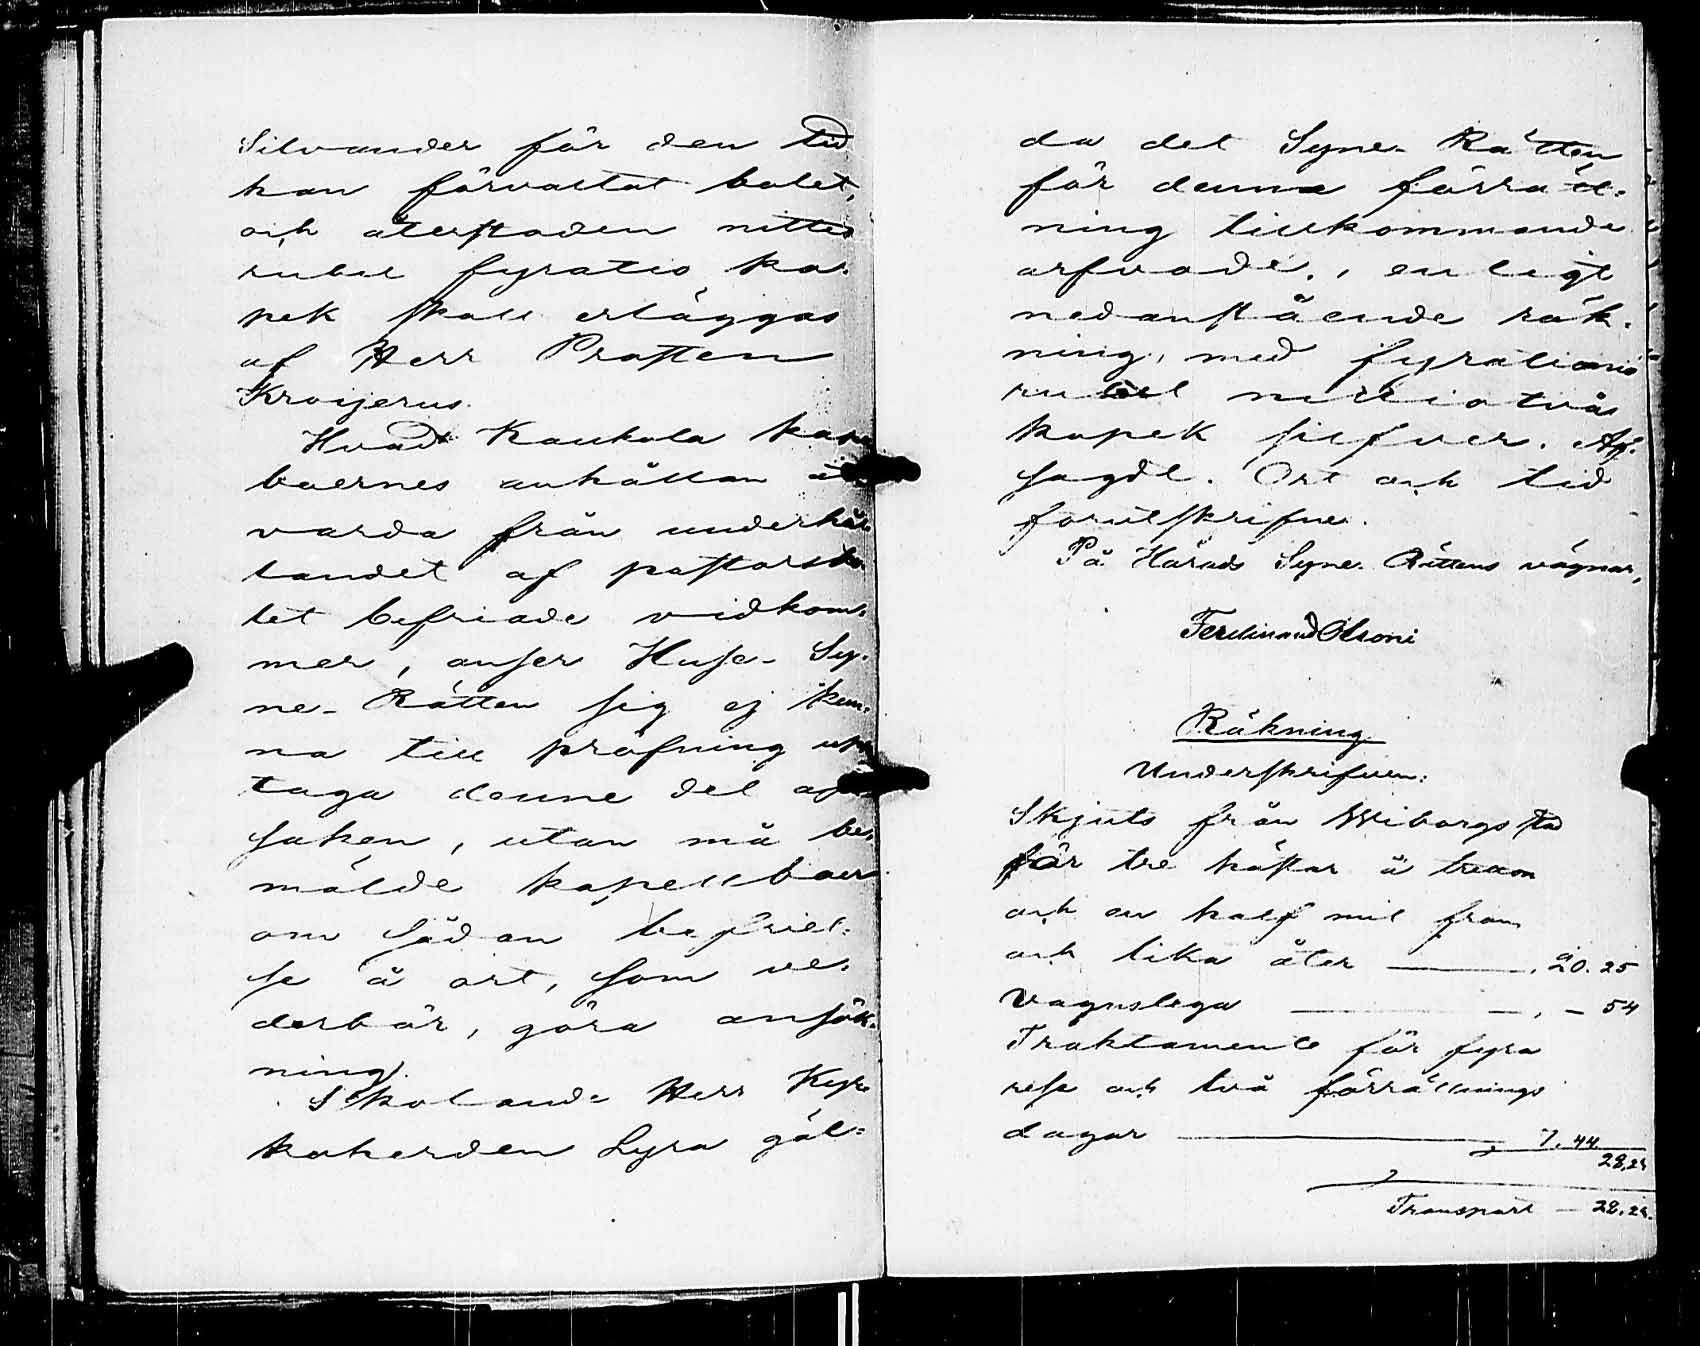 Silvander för den tid
han förvaltat bolet,
och återstoden nittio
rubel fyratio ko-
pek skall erläggas
af Herr Prosten
Kroijerus.
Hvad Kaukola kape
boernes anhållan att
varda från underhål-
landet af pastorsbo
let befriade vidkom-
mer, anser Huse- Sy-
ne- Rätten sig ej kun-
na till pröfning upp
taga denne del af
saken, utan må be-
mälde kapellboer
om sådan befriel-
se å ort, som ve-
derbör, göra ansök-
ning.
Skolande Herr Kyr
koherden Lyra gäl-
da det Syne- Rätten
för denna förrätt-
ning tillkommande
arfvode, enligt
nedanstående räk-
ning, med fyratio
rubel nittiotvå
kopek silfver. Af-
sagdt. Ort och tid
förutskrifne.
På Härads Syne- Rättens vägnar,
Ferdinand
Räkning
Underskrifven:
Skjuts från Wiborgs stad
för tre hästar å tretton
och en half mil fram
och lika åter — 20.25
Vagnslega — — 54
Traktamente för fyra
rese och två förrättnings
dagar — 7.44
28,23
Transport — 28.23.